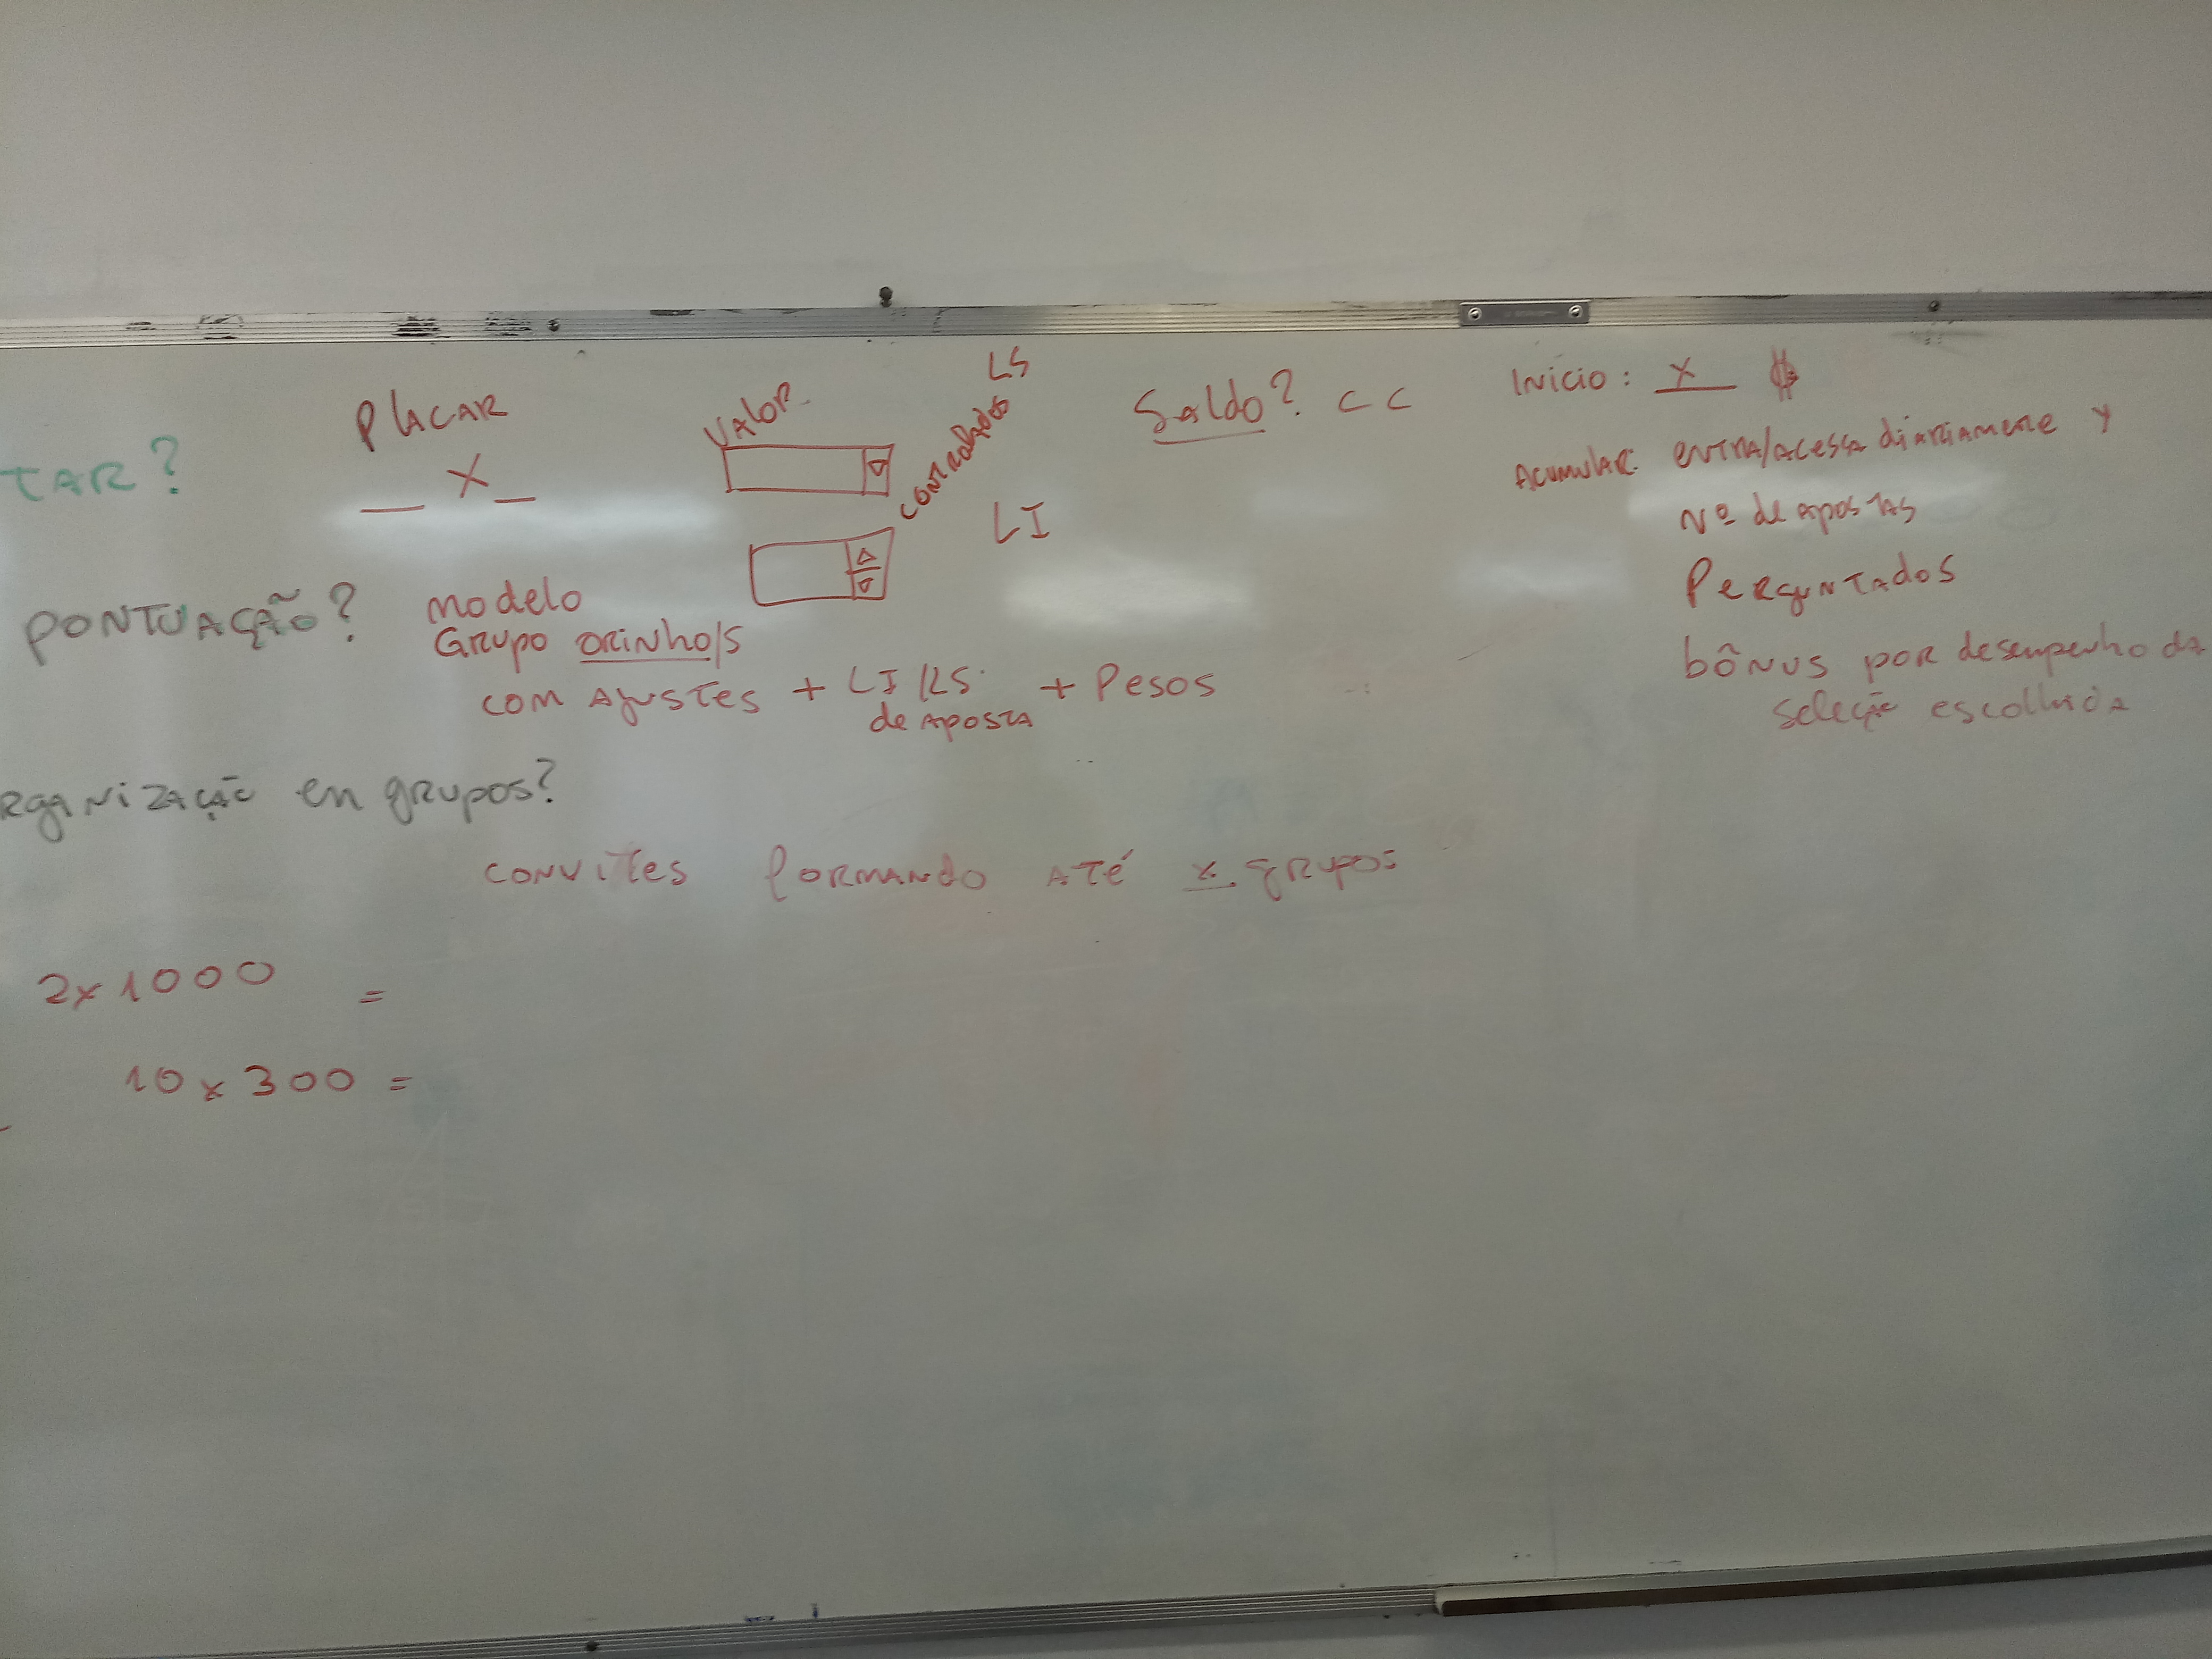 TAR?
PLACAR
_ X _
VALOR
CONTROLADOS
LS
LI
Saldo? CC
INICIO: X $
ACUMULAR: ENTRA/ACESSA diariamente y
Nº de apostas
PERGUNTADOS
bônus por desempenho da
seleção escolhida
PONTUAÇÃO?
modelo
GRUPO ORINHO/S
COM AJUSTES + LI/LS + Pesos
de APOSTA
RGANIZAÇÃO em grupos?
CONVITES FORMANDO ATÉ x grupos
2x1000 =
10x300 =